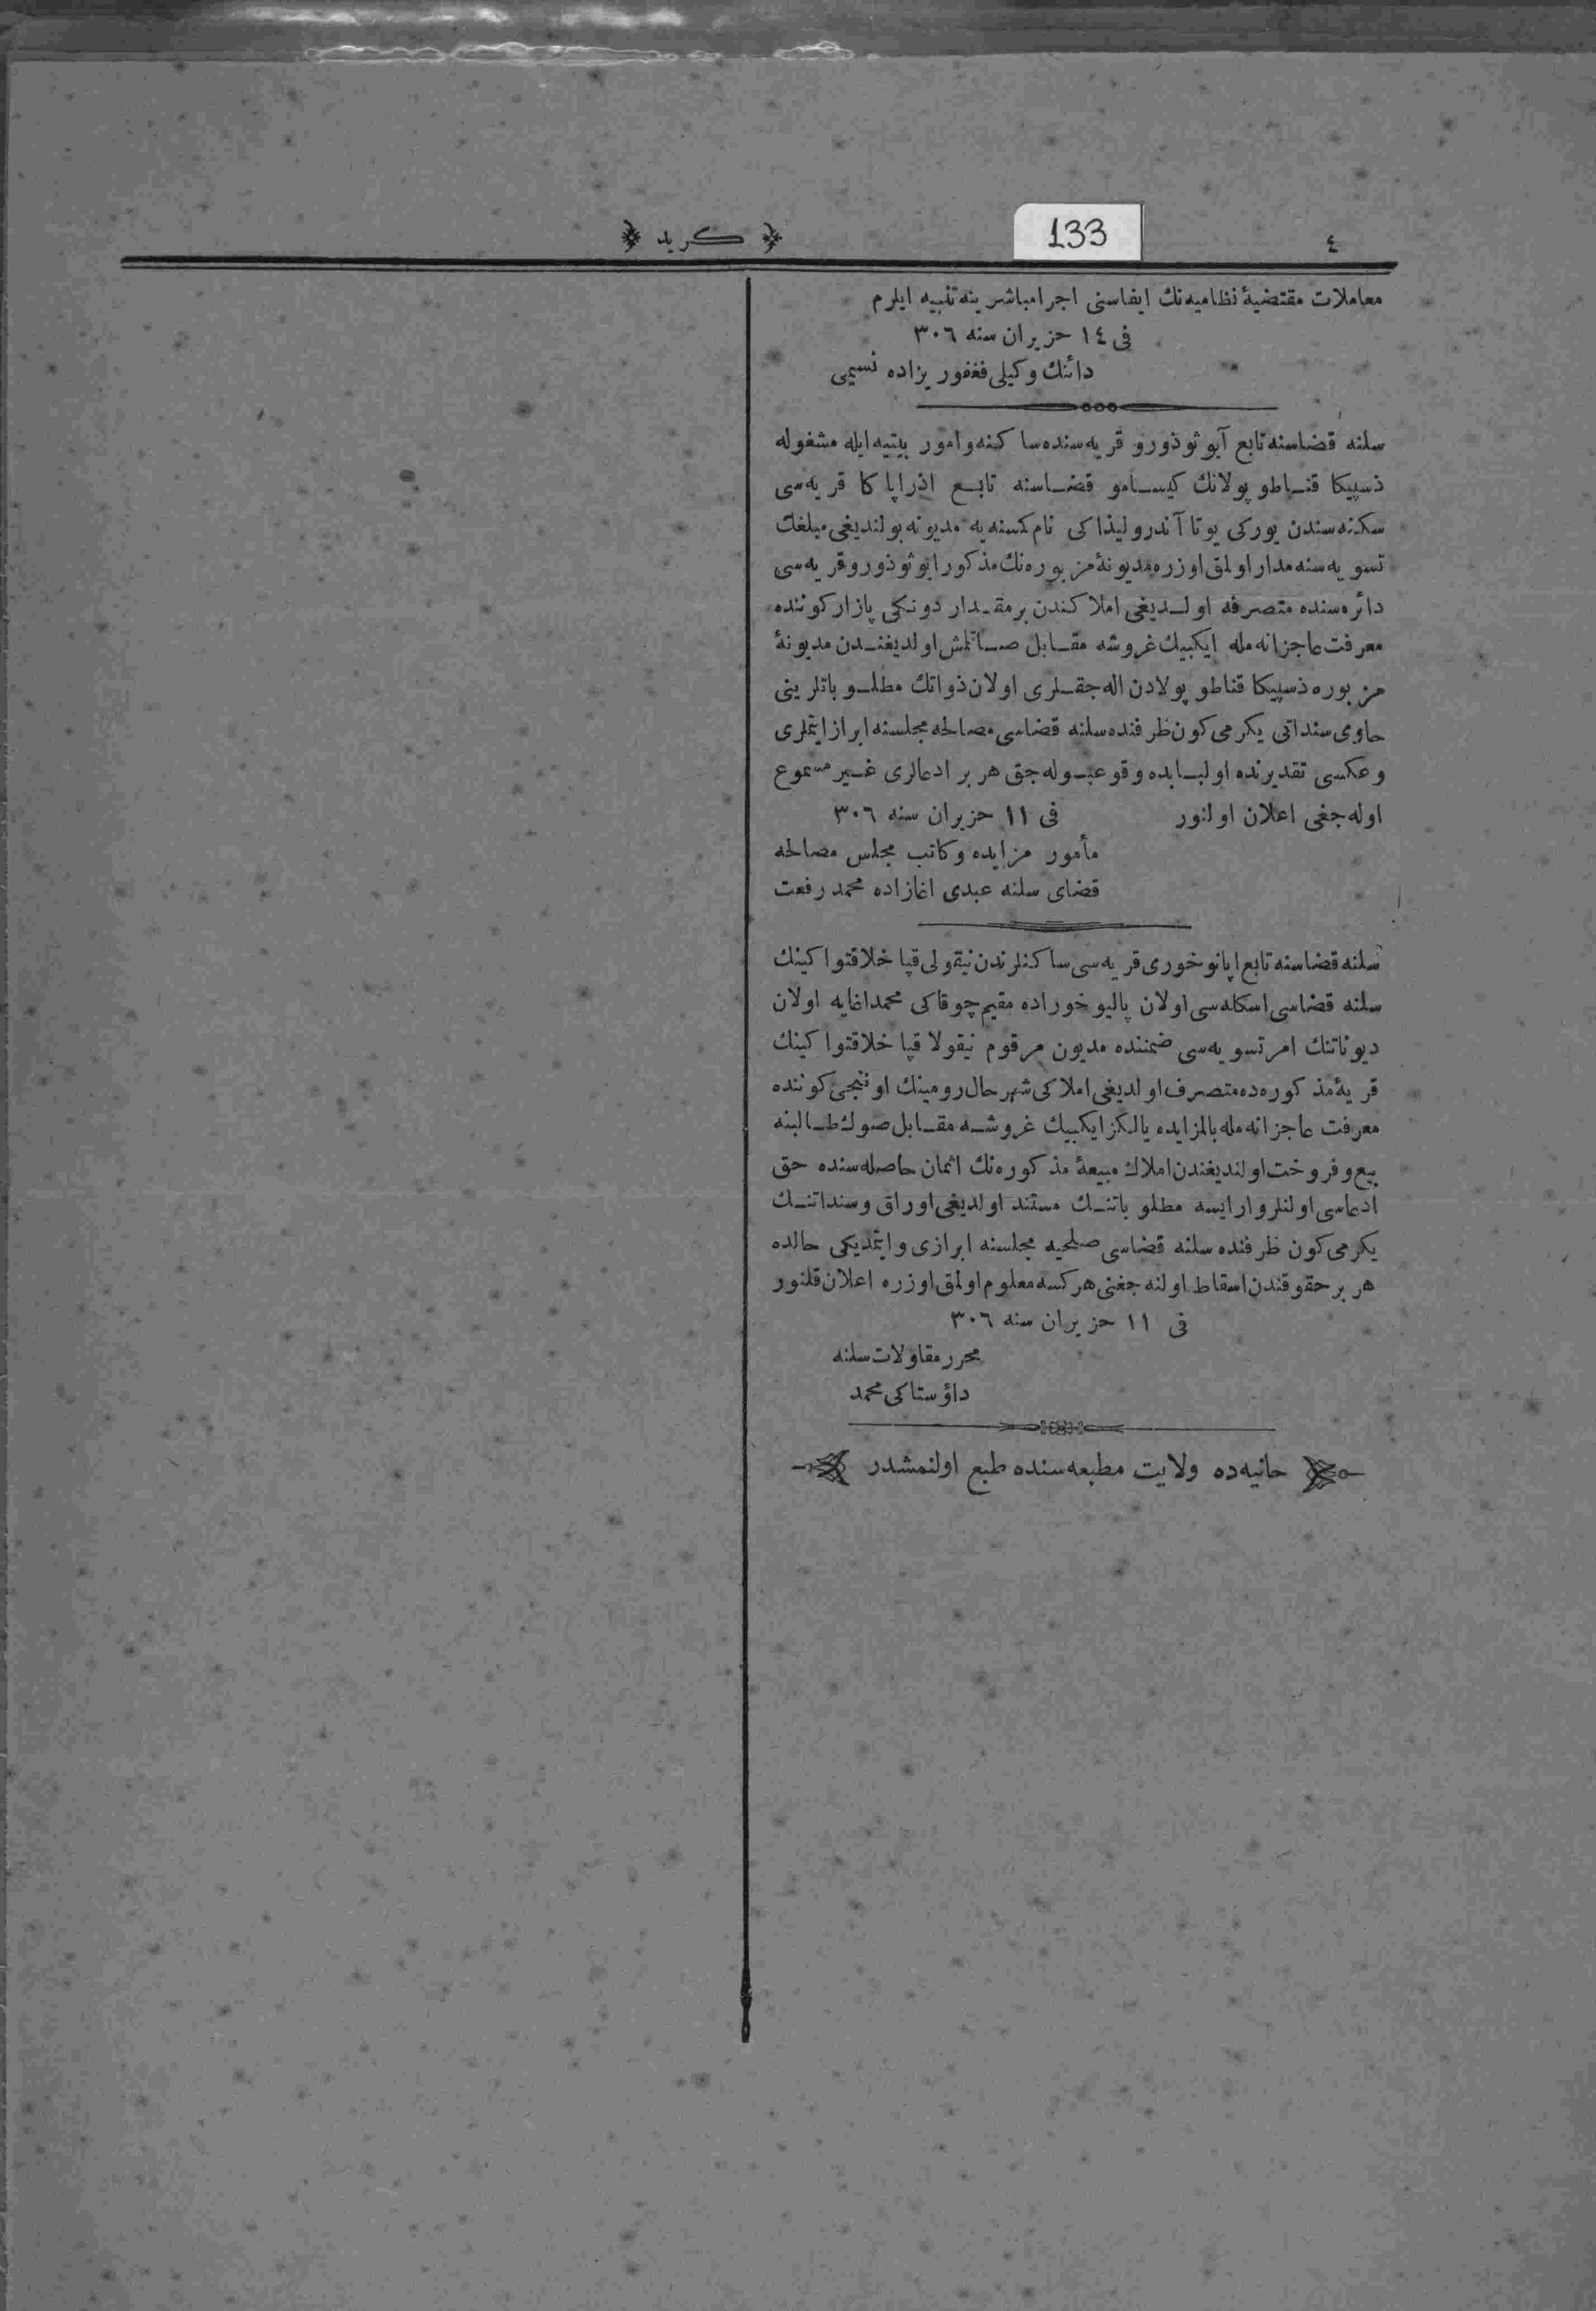 ٤
133
كريد
معاملات مقتضيۀ نظاميه‌نك ايفاسنى اجرا مباشرينه تنبيه ايلرم
فى ١٤ حزيران سنه ٣٠٦
دائنك وكيلى فغفور يزاده نسيمى
سلنه قضاسنه تابع آيو ثوذورو قريه‌سنده ساكنه وامور بيتيه ايله مشغوله
ذسپيكا قنــاطو پولانك كيســامو قضــاسنه تابــع اذراپا كا قريه‌سى
سكنه‌سندن يوركى يوتا آندروليذاكى نام كسنه‌يه مديونه بولنديغى مبلغك
تسويه‌سنه مدار اولمق اوزره مديونۀ مزبوره‌نك مذكور ايو ثوذورو قريه‌سى
دائره‌سنده متصرفه اولــديغى املاكندن برمقــدار دونكى پازار كوننده
معرفت عاجزانه‌مله ايكبيك غروشه مقــابل صــاتلمش اولديغنــدن مديونۀ
مزبوره ذسپيكا قناطو پولادن اله‌جقــلرى اولان ذواتك مطلــوباتلرينى
حاوى سنداتى يكرمى كون ظرفنده سلنه قضاسى مصالحه مجلسنه ابراز ايتملرى
وعكسى تقديرنده اولبــابده وقوعبــوله‌جق هر بر ادعالرى غــير مسموع
اوله‌جغى اعلان اولنور فى ١١ حزيران سنه ٣٠٦
مأمور مزايده وكاتب مجلس مصالحه
قضاى سلنه عبدى اغازاده محمد رفعت
سلنه قضاسنه تابع اپانوخورى قريه‌سى ساكنلرندن نيقولى قپا خلاقتواكينك
سلنه قضاسى اسكله‌سى اولان پاليو خوراده مقيم چوقاكى محمداغايه اولان
ديوناتنك امر تسويه‌سى ضمننده مديون مرقوم نيقولا قپا خلاقتواكينك
قريۀ مذكوره‌ده متصرف اولديغى املاكى شهر حال رومينك اوننجى كوننده
معرفت عاجزانه‌مله بالمزايده يالكز ايكبيك غروشــه مقــابل صوك طــالبنه
بيع وفروخت اولنديغندن املاك مبيعۀ مذكوره‌نك اثمان حاصله‌سنده حق
ادعاسى اولنلر وار ايسه مطلوباتنــك مستند اولديغى اوراق وسنداتنــك
يكرمى كون ظرفنده سلنه قضاسى صلحيه مجلسنه ابرازى وايتمديكى حالده
هر بر حقوقندن اسقاط اولنه‌جغنى هركسه معلوم اولمق اوزره اعلان قلنور
فى ١١ حزيران سنه ٣٠٦
محرر مقاولات سلنه
داؤستاكى محمد
حانيه‌ده ولايت مطبعه‌سنده طبع اولنمشدر